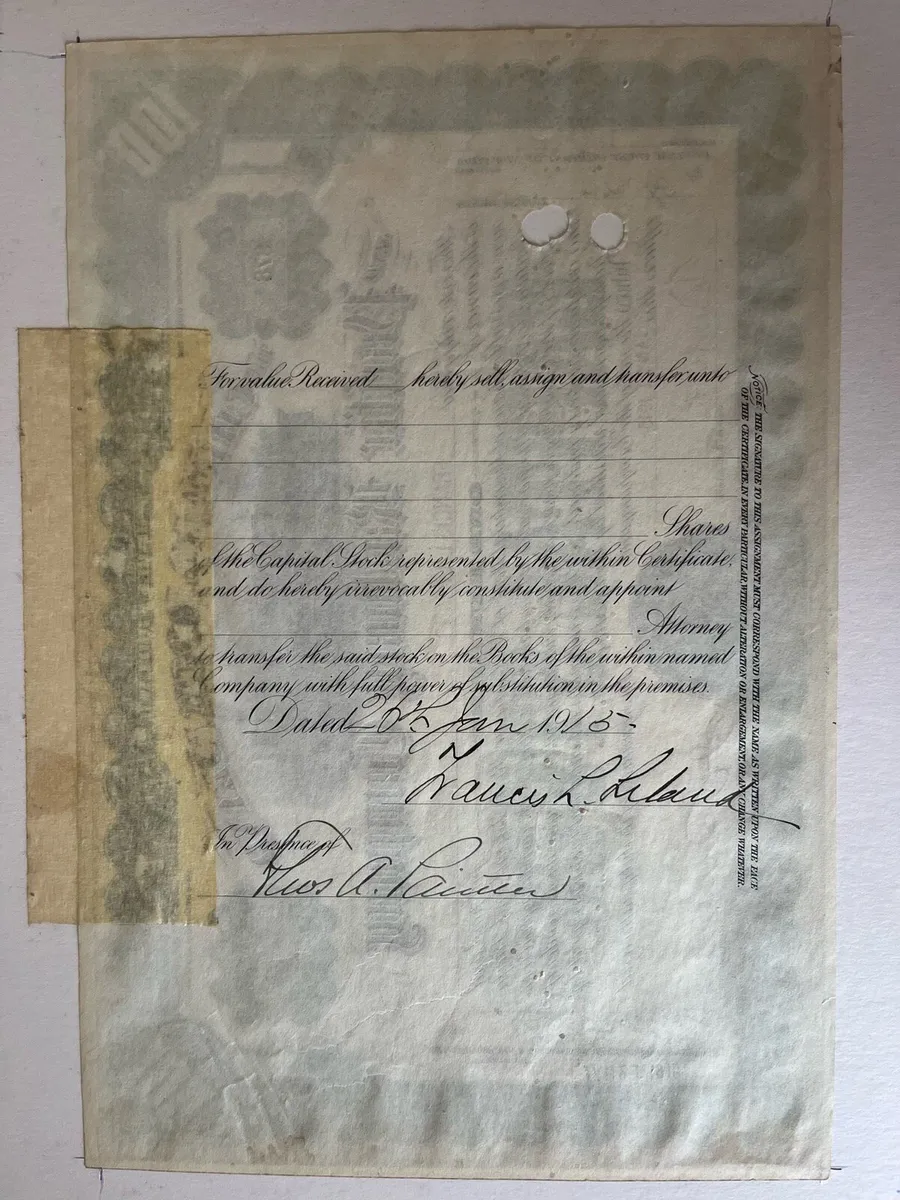 For value Received hereby sell, assign and transfer unto
Shares
of the Capital Stock represented by the within Certificate,
and do hereby irrevocably constitute and appoint
Attorney
to transfer the said stock on the Books of the within named
Company with full power of substitution in the premises.
Dated 26th Jan 1915-
Francis L. Leland
In Presence of
Thos A. Painter
NOTICE: THE SIGNATURE TO THIS ASSIGNMENT MUST CORRESPOND WITH THE NAME AS WRITTEN UPON THE FACE
OF THE CERTIFICATE, IN EVERY PARTICULAR, WITHOUT ALTERATION OR ENLARGEMENT OR ANY CHANGE WHATEVER.
100